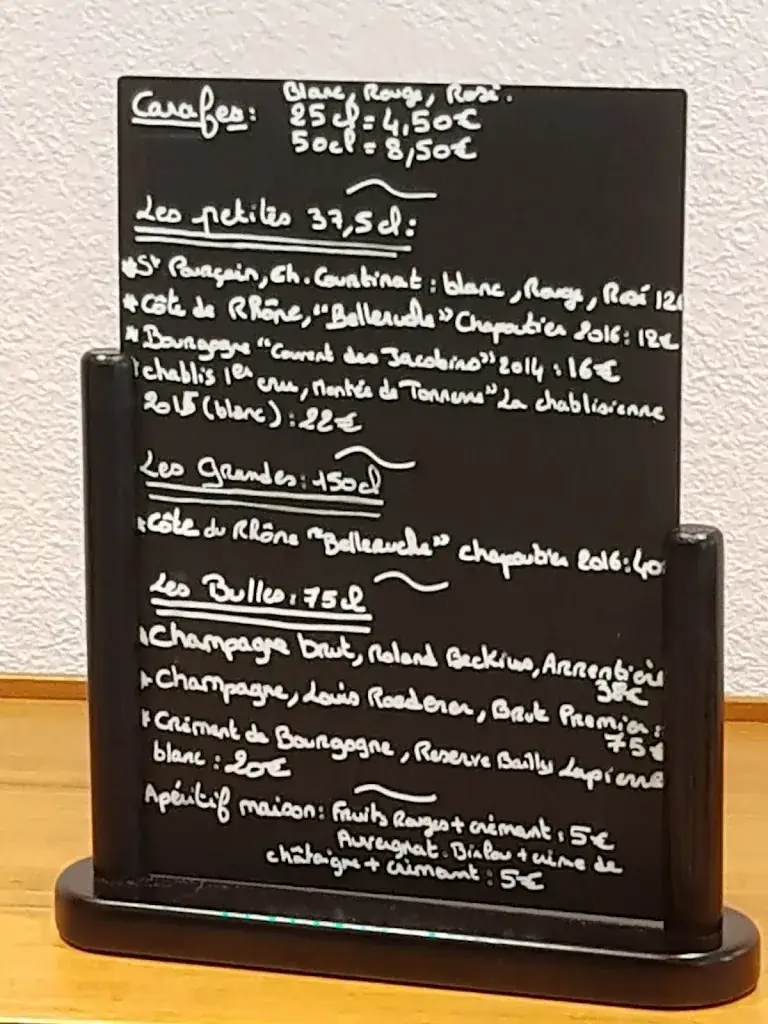 Blanc, Rouge, Rosé.
Carafes: 25 cl = 4,50€
50cl = 8,50€
Les petites 37,5 cl:
*St Pourçain, Ch. Courtinat : blanc, Rouge, Rosé 12€
*Côte de Rhône, "Belleruche" Chapoutier 2016: 12€
*Bourgogne "Couvent des Jacobins" 2014 : 16€
*chablis 1er cru, Montée de Tonnerre" La chablisienne
2015 (blanc) : 22€
Les Grandes: 150cl
*Côte du Rhône "Belleruche" chapoutier 2016: 40
Les Bulles: 75cl
*Champagne brut, Roland
38€
*Champagne, Louis Roederer, Brut Premier:
75€
*Crémant de Bourgogne, Reserve Bailly Lapierre
blanc : 20€
Apéritif maison: Fruits Rouges + crémant : 5€
Auvergnat. + crème de
châtaigne + crémant : 5€